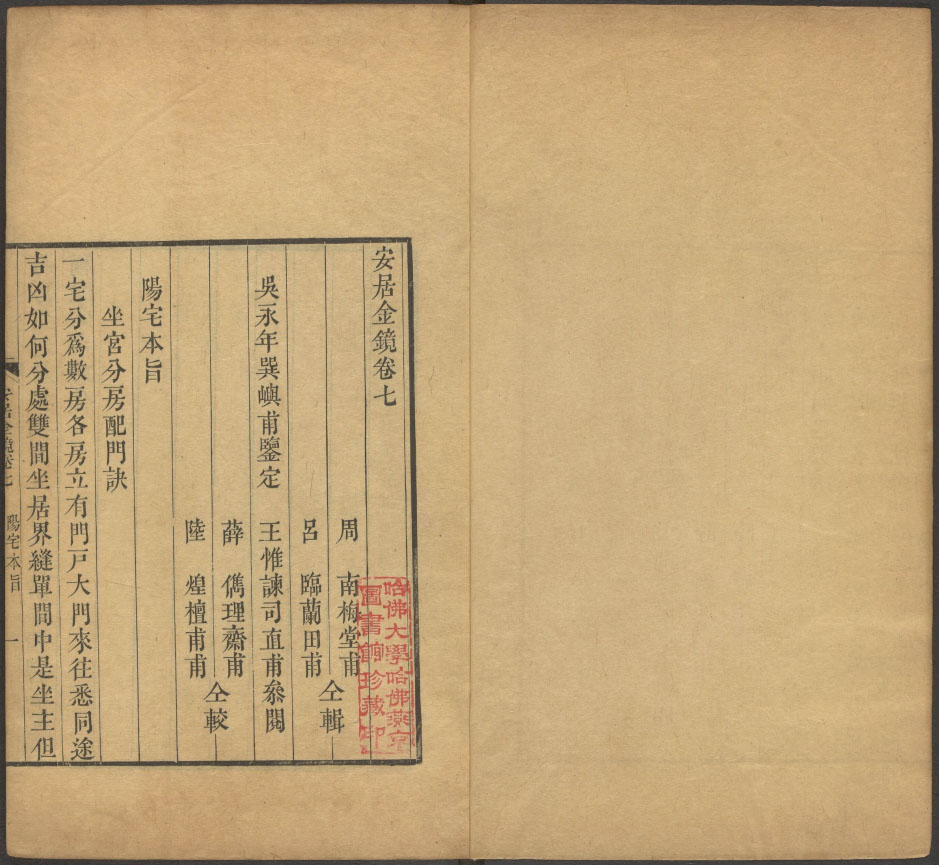 安居金鏡卷七
周 南梅堂甫
呂 臨蘭田甫
仝輯
吳永年巽嶼甫鑒定 王惟諫司直甫叅閱
薛 儁理齋甫
陸 煌檀甫甫
仝較
陽宅本旨
坐宮分房配門訣
一宅分爲數房各房立有門戸大門來往悉同途
吉凶如何分處雙間坐居界縫單間中是坐主但
安居金鏡卷七 陽宅本旨 一
哈佛大學哈佛燕京
圖書館珍藏印